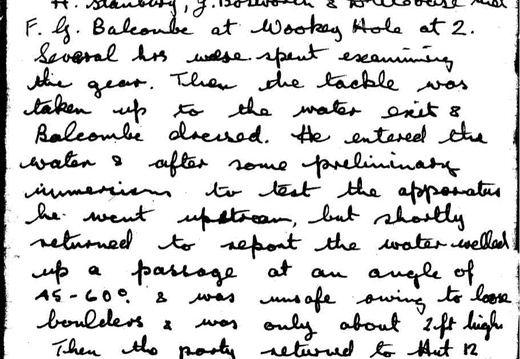 H. Stanbury, J. Bosworth & met
F. G. Balcombe at Wookey Hole at 2.
Several hrs were spent examining
the gear. Then the tackle was
taken up to the water exit &
Balcombe dressed. He entered the
water & after some preliminary
immersions to test the apparatus
he went upstream, but shortly
returned to report the water welled
up a passage at an angle of
45-60° & was unsafe owing to loose
boulders & was only about 2ft high
Then the party returned to Hut 12